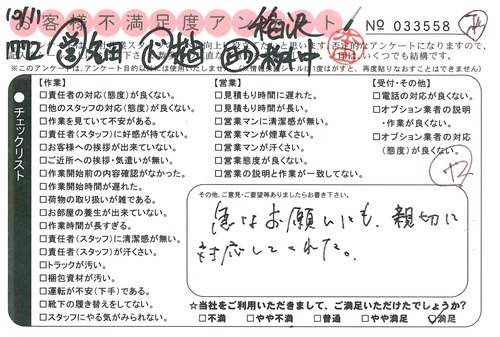 お客様不満足度アンケート
№ 033558
10/11
チェックリスト
【作業】
□責任者の対応(態度)が良くない。
□他のスタッフの対応(態度)が良くない。
□作業を見ていて不安がある。
□責任者(スタッフ)に好感が持てない。
□お客様への挨拶が出来ていない。
□ご近所への挨拶・気遣いが無い。
□作業開始前の内容確認がなかった。
□作業開始時間が遅れた。
□荷物の取り扱いが雑である。
□お部屋の養生が出来ていない。
□作業時間が長すぎる。
□責任者(スタッフ)に清潔感が無い。
□責任者(スタッフ)が汗くさい。
□トラックが汚い。
□梱包資材が汚い。
□運転が不安(下手)である。
□靴下の履き替えをしてない。
□スタッフにやる気がみられない。
【営業】
□見積もり時間に遅れた。
□見積もり時間が長い。
□営業マンに清潔感が無い。
□営業マンが煙草くさい。
□営業マンが汗くさい。
□営業態度が良くない。
□営業の説明と作業が一致してない。
【受付・その他】
□電話の対応が良くない。
□オプション業者の説明
・作業が良くない。
□オプション業者の対応
(態度)が良くない。
その他、ご意見・ご要望等ありましたらお書き下さい。
急なお願いにも、親切に
対応してくれた。
☆当社をご利用いただきまして、ご満足いただけたでしょうか?
□不満 □やや不満 □普通 □やや満足 ☑満足